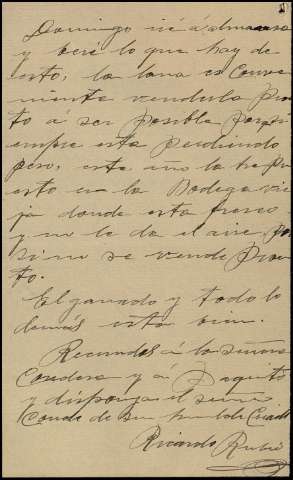 Domingo iré á almansa
y veré lo que hay de
esto, la lana es conve
niente venderla pron
to á ser posible porqe si
empre esta perdiendo
peso, este año la he pu
esto en la Bodega vie
ja donde esta fresco
y no le da el aire, por
si no se vende pron
to.
El ganado y todo lo
demás esta bien.
Recuerdos á la señora
Condesa y á Paquito
y disponga el señor
Conde de su humilde Criado
Ricardo Rubio